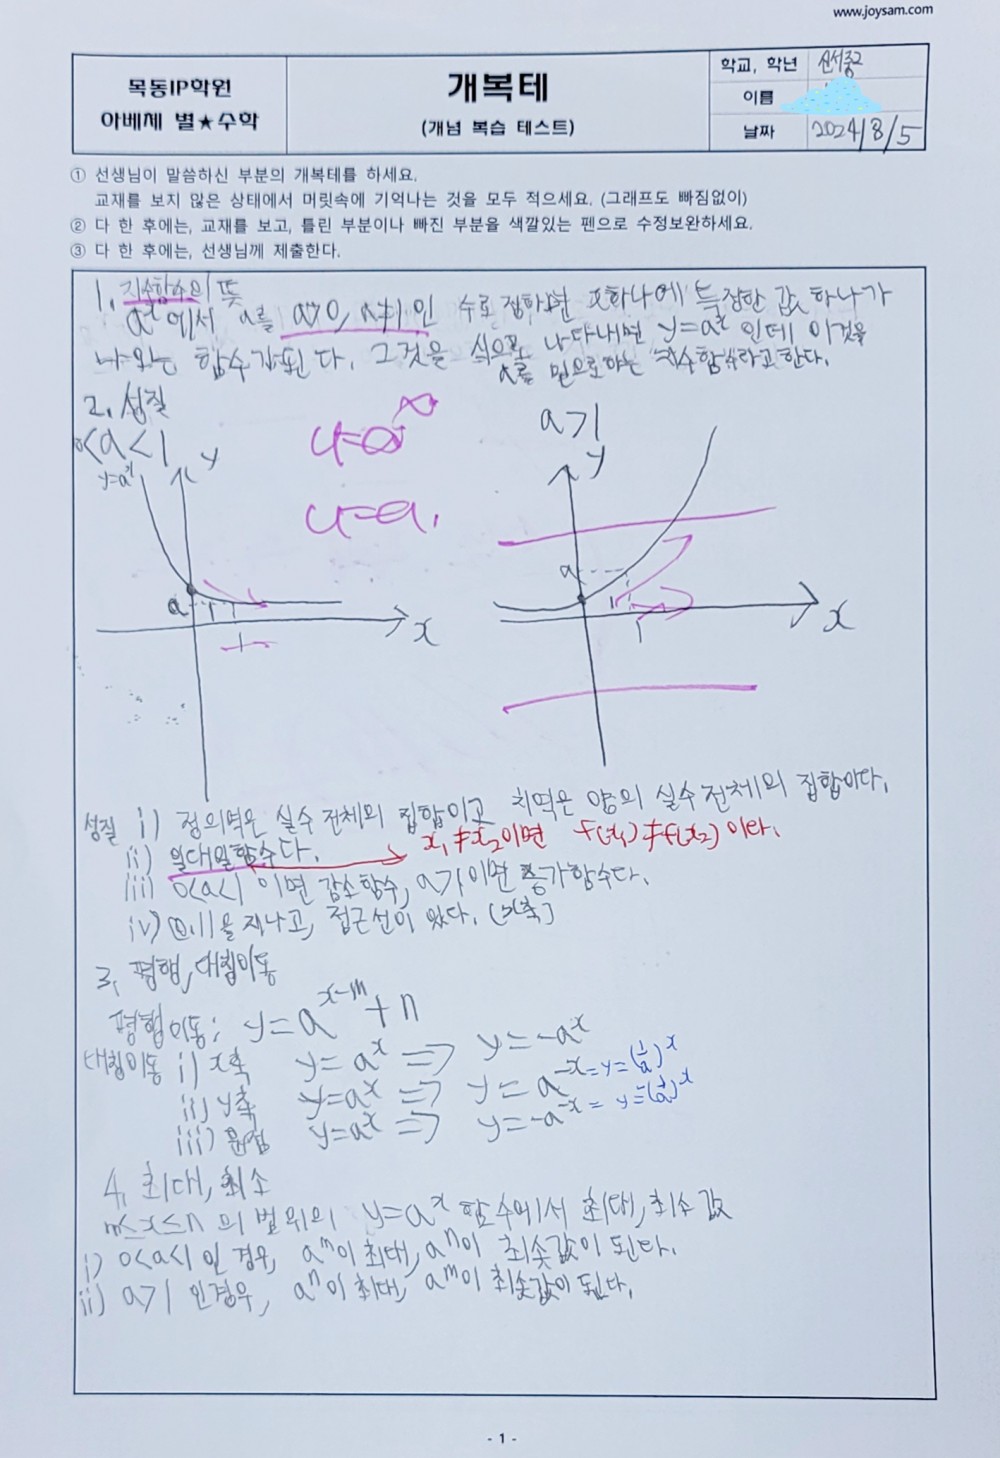 www.joysam.com
목동IP학원
아베체 별★수학
개복테
(개념 복습 테스트)
학교, 학년 신서중2
이름
날짜 2024/8/5
① 선생님이 말씀하신 부분의 개복테를 하세요.
교재를 보지 않은 상태에서 머릿속에 기억나는 것을 모두 적으세요. (그래프도 빠짐없이)
② 다 한 후에는, 교재를 보고, 틀린 부분이나 빠진 부분을 색깔있는 펜으로 수정보완하세요.
③ 다 한 후에는, 선생님께 제출한다.
1. 지수함수의 뜻
a^x에서 a를 a>0, a≠1인 수로 정하면 x하나에 특정한 값 하나가
나오는 함수가 된다. 그것을 식으로 나타내면 y=a^x 인데 이것을
a를 밑으로하는 지수함수라고 한다.
2. 성질
0<a<1
y=a^x
y
a
1
x
y=a^x
y=a.
a>1
y
a
1
x
성질 i) 정의역은 실수 전체의 집합이고 치역은 양의 실수 전체의 집합이다.
ii) 일대일함수다. → x₁≠x₂이면 f(x₁)≠f(x₂)이다.
iii) 0<a<1 이면 감소함수, a>1이면 증가함수다.
iv) (0,1)을 지나고, 점근선이 있다. (x축)
3. 평행, 대칭이동
평행이동: y=a^{x-m}+n
대칭이동 i) x축 y=a^x ⇒ y=-a^x
ii) y축 y=a^x ⇒ y=a^{-x} = y=(1/a)^x
iii) 원점 y=a^x ⇒ y=-a^{-x} = y=-(1/a)^x
4. 최대, 최소
m≤x≤n 의 범위의 y=a^x 함수에서 최대, 최소 값
i) 0<a<1 인 경우, a^m이 최대, a^n이 최솟값이 된다.
ii) a>1 인경우, a^n이 최대, a^m이 최솟값이 된다.
- 1 -